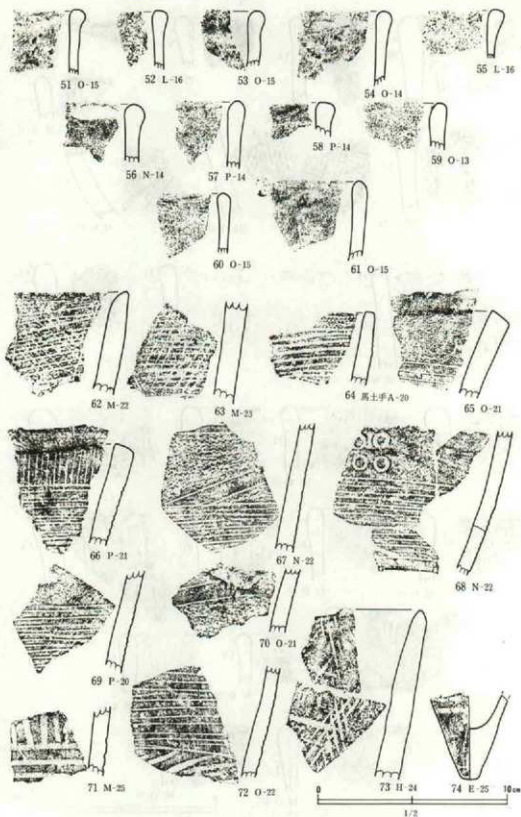 51 O-15
52 L-16
53 O-15
54 O-14
55 L-16
56 N-14
57 P-14
58 P-14
59 O-13
60 O-15
61 O-15
62 M-22
63 M-23
64 馬土手A-20
65 O-21
66 P-21
67 N-22
68 N-22
69 P-20
70 O-21
71 M-25
72 O-22
73 H-24
74 E-25
0 10cm
1/2